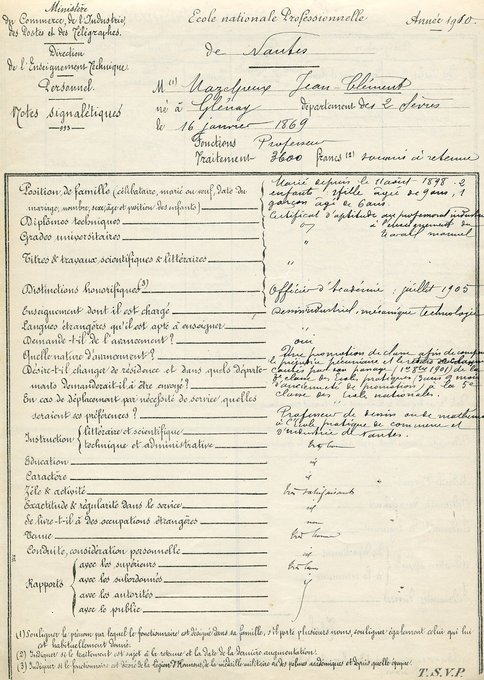 Ministère
du Commerce, de l'Industrie,
des Postes et des Télégraphes.
Direction
de l'Enseignement Technique.
Personnel.
Notes signalétiques
Ecole nationale Professionnelle
Année 1910.
de Nantes
M (1) Mazelpeux Jean Clément
né à Glénay département des 2 Sèvres
le 16 janvier 1869
Fonctions Professeur
Traitement 3600 francs (2) soumis à retenue
Position de famille (célibataire, marié ou veuf, date du
mariage, nombre, sexe, âge et position des enfants)
Marié depuis le 11 août 1898. 2
enfants 1 fille âgée de 9 ans, 1
garçon âgé de 6 ans.
Diplômes techniques
Certificat d'aptitude au professorat industriel
Grades universitaires
à l'enseignement du
travail manuel
Titres & travaux, scientifiques & littéraires
"
Distinctions honorifiques (3)
Officier d'Académie : juillet 1905
Enseignement dont il est chargé
Dessin industriel, mécanique, technologie
Langues étrangères qu'il est apte à enseigner
"
Demande-t-il de l'avancement ?
oui
Quelle nature d'avancement ?
Une promotion de classe afin de
le préjudice pécuniaire et
Désire-t-il changer de résidence et dans quels départe-
ments demanderait-il à être envoyé ?
causés par son passage (1er 8bre 1901) de la
classe des Ecoles pratiques
d'ancienneté de promotion) à la 5e
En cas de déplacement par nécessité de service, quelles
seraient ses préférences ?
classe des Ecoles nationales.
Professeur de dessin ou de mathém
à l'Ecole pratique de commerce et
d'industrie de Nantes.
Instruction { littéraire et scientifique
technique et administrative
très bonne
Education
id
Caractère
id
Zèle & activité
très satisfaisants
Exactitude & régularité dans le service
id
Se livre-t-il à des occupations étrangères
non
Tenue
très bonne
Conduite, considération personnelle
id
Rapports { avec les supérieurs
très bons
avec les subordonnés
avec les autorités
avec le public
(1) Souligner le prénom par lequel le fonctionnaire est désigné dans sa famille, s'il porte plusieurs noms, souligner également celui qui lui
est habituellement donné.
(2) Indiquer si le traitement est sujet à la retenue et la date de la dernière augmentation.
(3) Indiquer si le fonctionnaire est décoré de la Légion d'Honneur, de la médaille militaire ou des palmes académiques et depuis quelle époque.
T.S.V.P.